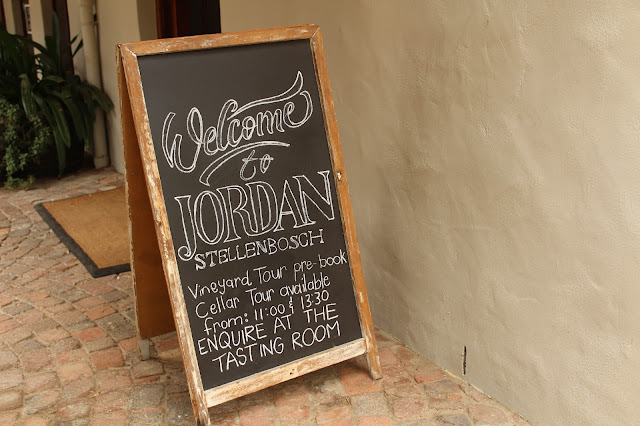 Welcome
to
JORDAN
STELLENBOSCH
Vineyard Tour pre-book
Cellar Tour available
from: 11:00 & 13:30
ENQUIRE AT THE
TASTING ROOM